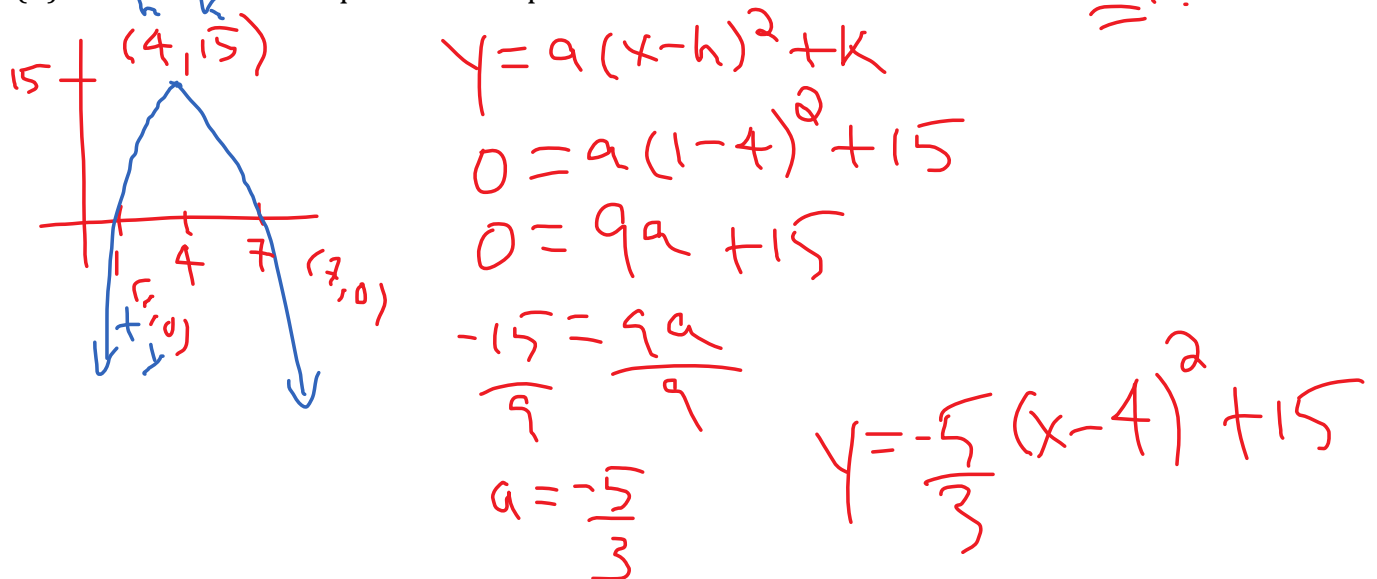 h k
(4, 15)
15
1 4 7
(1, 0)
x y
(7, 0)
y = a(x-h)² + k
0 = a(1-4)² + 15
0 = 9a + 15
-15 = 9a
9 9
a = -5
3
y = -5/3 (x-4)² + 15